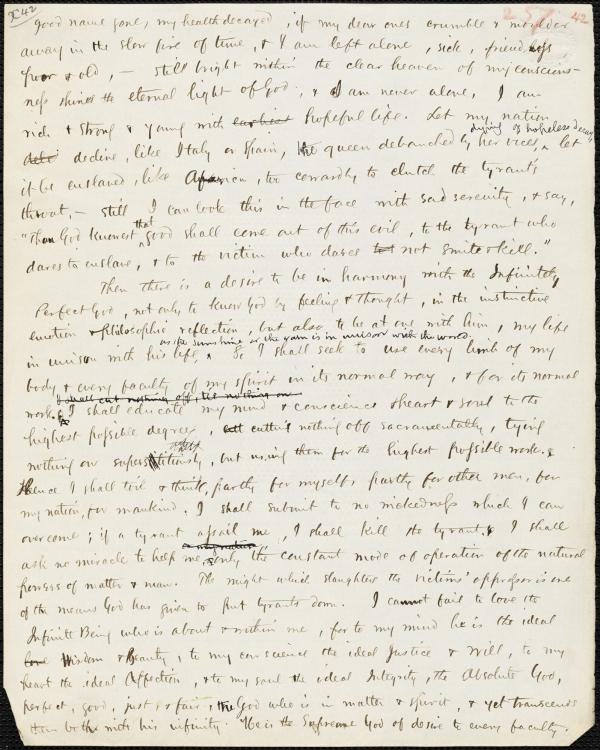 X 42
257 42
good name gone, my health decayed, if my dear ones crumble & moulder
away in the slow fire of time, & I am left alone, sick, friendless
poor & old, — still bright within the clear heaven of my conscious-
ness shines the eternal light of God, & I am never alone, I am
rich & strong & young with hopeful life. Let my nation
dying of hopeless decay,
decline, like Italy or Spain, the queen debauched by her vices, let
it be enslaved, like too cowardly to clutch the tyrant's
throat, — still I can look this in the face with sad serenity, & say,
that
"Thou God knowest good shall come out of this evil, to the tyrant who
dares to enslave, & to the victim who dares not smite & kill."
Then there is a desire to be in harmony with the Infinitely
Perfect God, not only to know God by feeling & thought, in the instinctive
emotion & philosophic reflection, but also to be at one with him, my life
as the sunshine or the rain is in unison with the world.
in unison with his life. So I shall seek to use every limb of my
body & every faculty of my spirit in its normal way, & for its normal
I shall cut nothing off, tie nothing on
work. I shall educate my mind & conscience & heart & soul to the
highest possible degree, cutting nothing off sacramentally, tying
nothing on superstitiously, but using them for the highest possible work.
Hence I shall toil & think, partly for myself, partly for other men, for
my nation, for mankind. I shall submit to no wickedness which I can
overcome; if a tyrant assail me, I shall kill the tyrant, & I shall
or my nation
ask no miracle to help me, only the constant mode of operation of the natural
powers of matter & man. The might which slaughters the victims' oppressor is one
of the means God has given to put tyrants down. I cannot fail to love the
Infinite Being who is about & within me, for to my mind he is the ideal
Wisdom & Beauty, to my conscience the ideal Justice & Will, to my
heart the ideal Affection, & to my soul the ideal Integrity, the Absolute God,
perfect, good, just & fair, the God who is in matter & spirit, & yet transcends
them both with his infinity. He is the Supreme God of desire to every faculty.